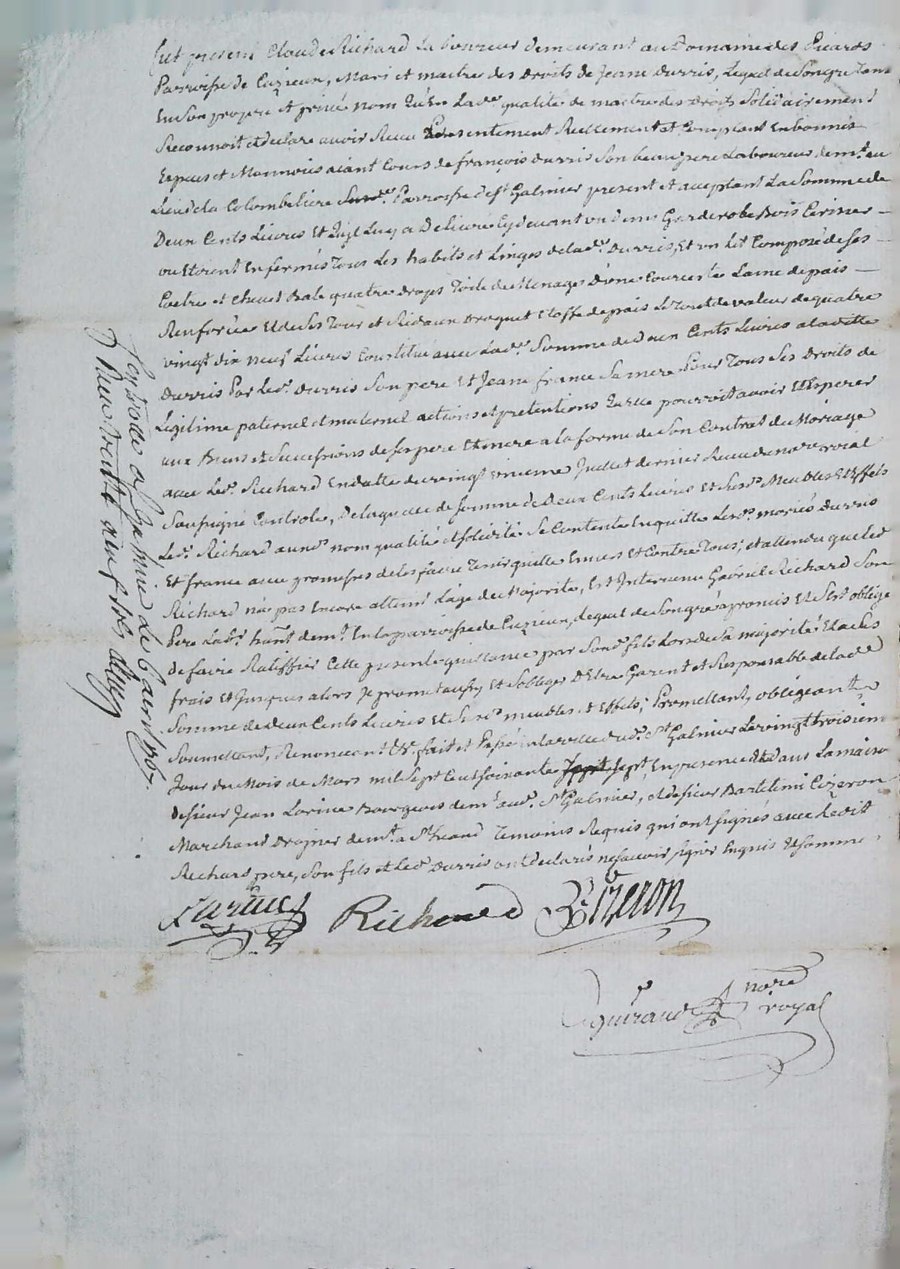 fut present Claude Richard laboureur demeurant au Domaine des Picards
Parroisse de Cuzieux, Mari et maitre des Droits de Jeane Durris, Lequel de Son gre tant
En Son propre et privé nom qu'En Lad.e qualité de maitre des Droits Solidairement
Reconnoit et declare avoir Receu Presentement Reellement et Comptant En bonnes
Especes et Monnoies aiant Cours de françois Durris Son beau pere Laboureur dem.t au
Lieu de la Colombeliere Parroisse de S.t Galmier present et aceptant La Somme de
Deux Cents Livres Et quil luy a Delivré Cy devant un demi Garderobe Bois Cerisier
ou Etoient Enfermés Tous Les habits et Linges de lad.e Durris, Et un Lit Composé de Ses
Coetre et Chevet Bale quatre Draps Toile de Menage D'une Couverte Laine de pais
Renforcée Et de Ses Tour et Rideaux Droguet Etoffe de pais Le Tout de valeur de quatre
vingt dix neuf Livres Constitué avec Lad.e Somme de deux Cents Livres a lad.
Durris Par Led. Durris Son pere Et Jeane france Sa mere Pour Tous Ses Droits de
Legitime paternel et maternel actions et pretentions qu'elle pourroit avoir Et Esperer
aux Biens et Successions de Ses pere Et mere a la forme de Son Contrat de Mariage
avec Led. Richard En datte du vingt unieme Juillet dernier Receu de no.re roial
Soussigné Controlé, De laquelle Somme de deux Cents Livres Et Sus. Meubles Et Effets
Led. Richard aux. nom qualité et Solidité Se Contente En quitte Lesd. mariés Durris
Et france avec promesses de les faire Tenir quittes Envers Et Contre Tous; et attendu que led
Richard n'a pas Encore atteint L'age de Majorité, Est Intervenu Gabriel Richard Son
Pere Lab.r dem.t En la parroisse de Cuzieux, Lequel de Son gré a promis Et S'est obligé
de faire Ratiffier Cette presente quittance par Sond. fils Lors de Sa majorité Et a Ses
frais Et Jusques alors Et S'obliger D'Etre Garent et Responsable de lad.e
Somme de deux Cents Livres Et Sus. meubles et Effets; Promettant, obligeant
Soumettant, Renonceant &c. fait et Passé En la ville dud. S.t Galmier Le vingt troisiem
Jour du Mois de Mars mil Sept Cent Soixante Sept En presence dans La maiso
de Sieur Jean Larive Bourgeois dem.t aud. S.t Galmier, et de Sieur Bartelmi Cizeron
Marchand Drapier dem.t a S.t Temoins Requis qui ont signés avec Ledit
Richard pere, Son fils et led. Durris ont declarés ne Savoir signer Enquis Et Sommé
Richard Cizeron
Eguiraud no.re
royal
a S.t Galmier Le 6 avril 1767
Receu trente neuf sols